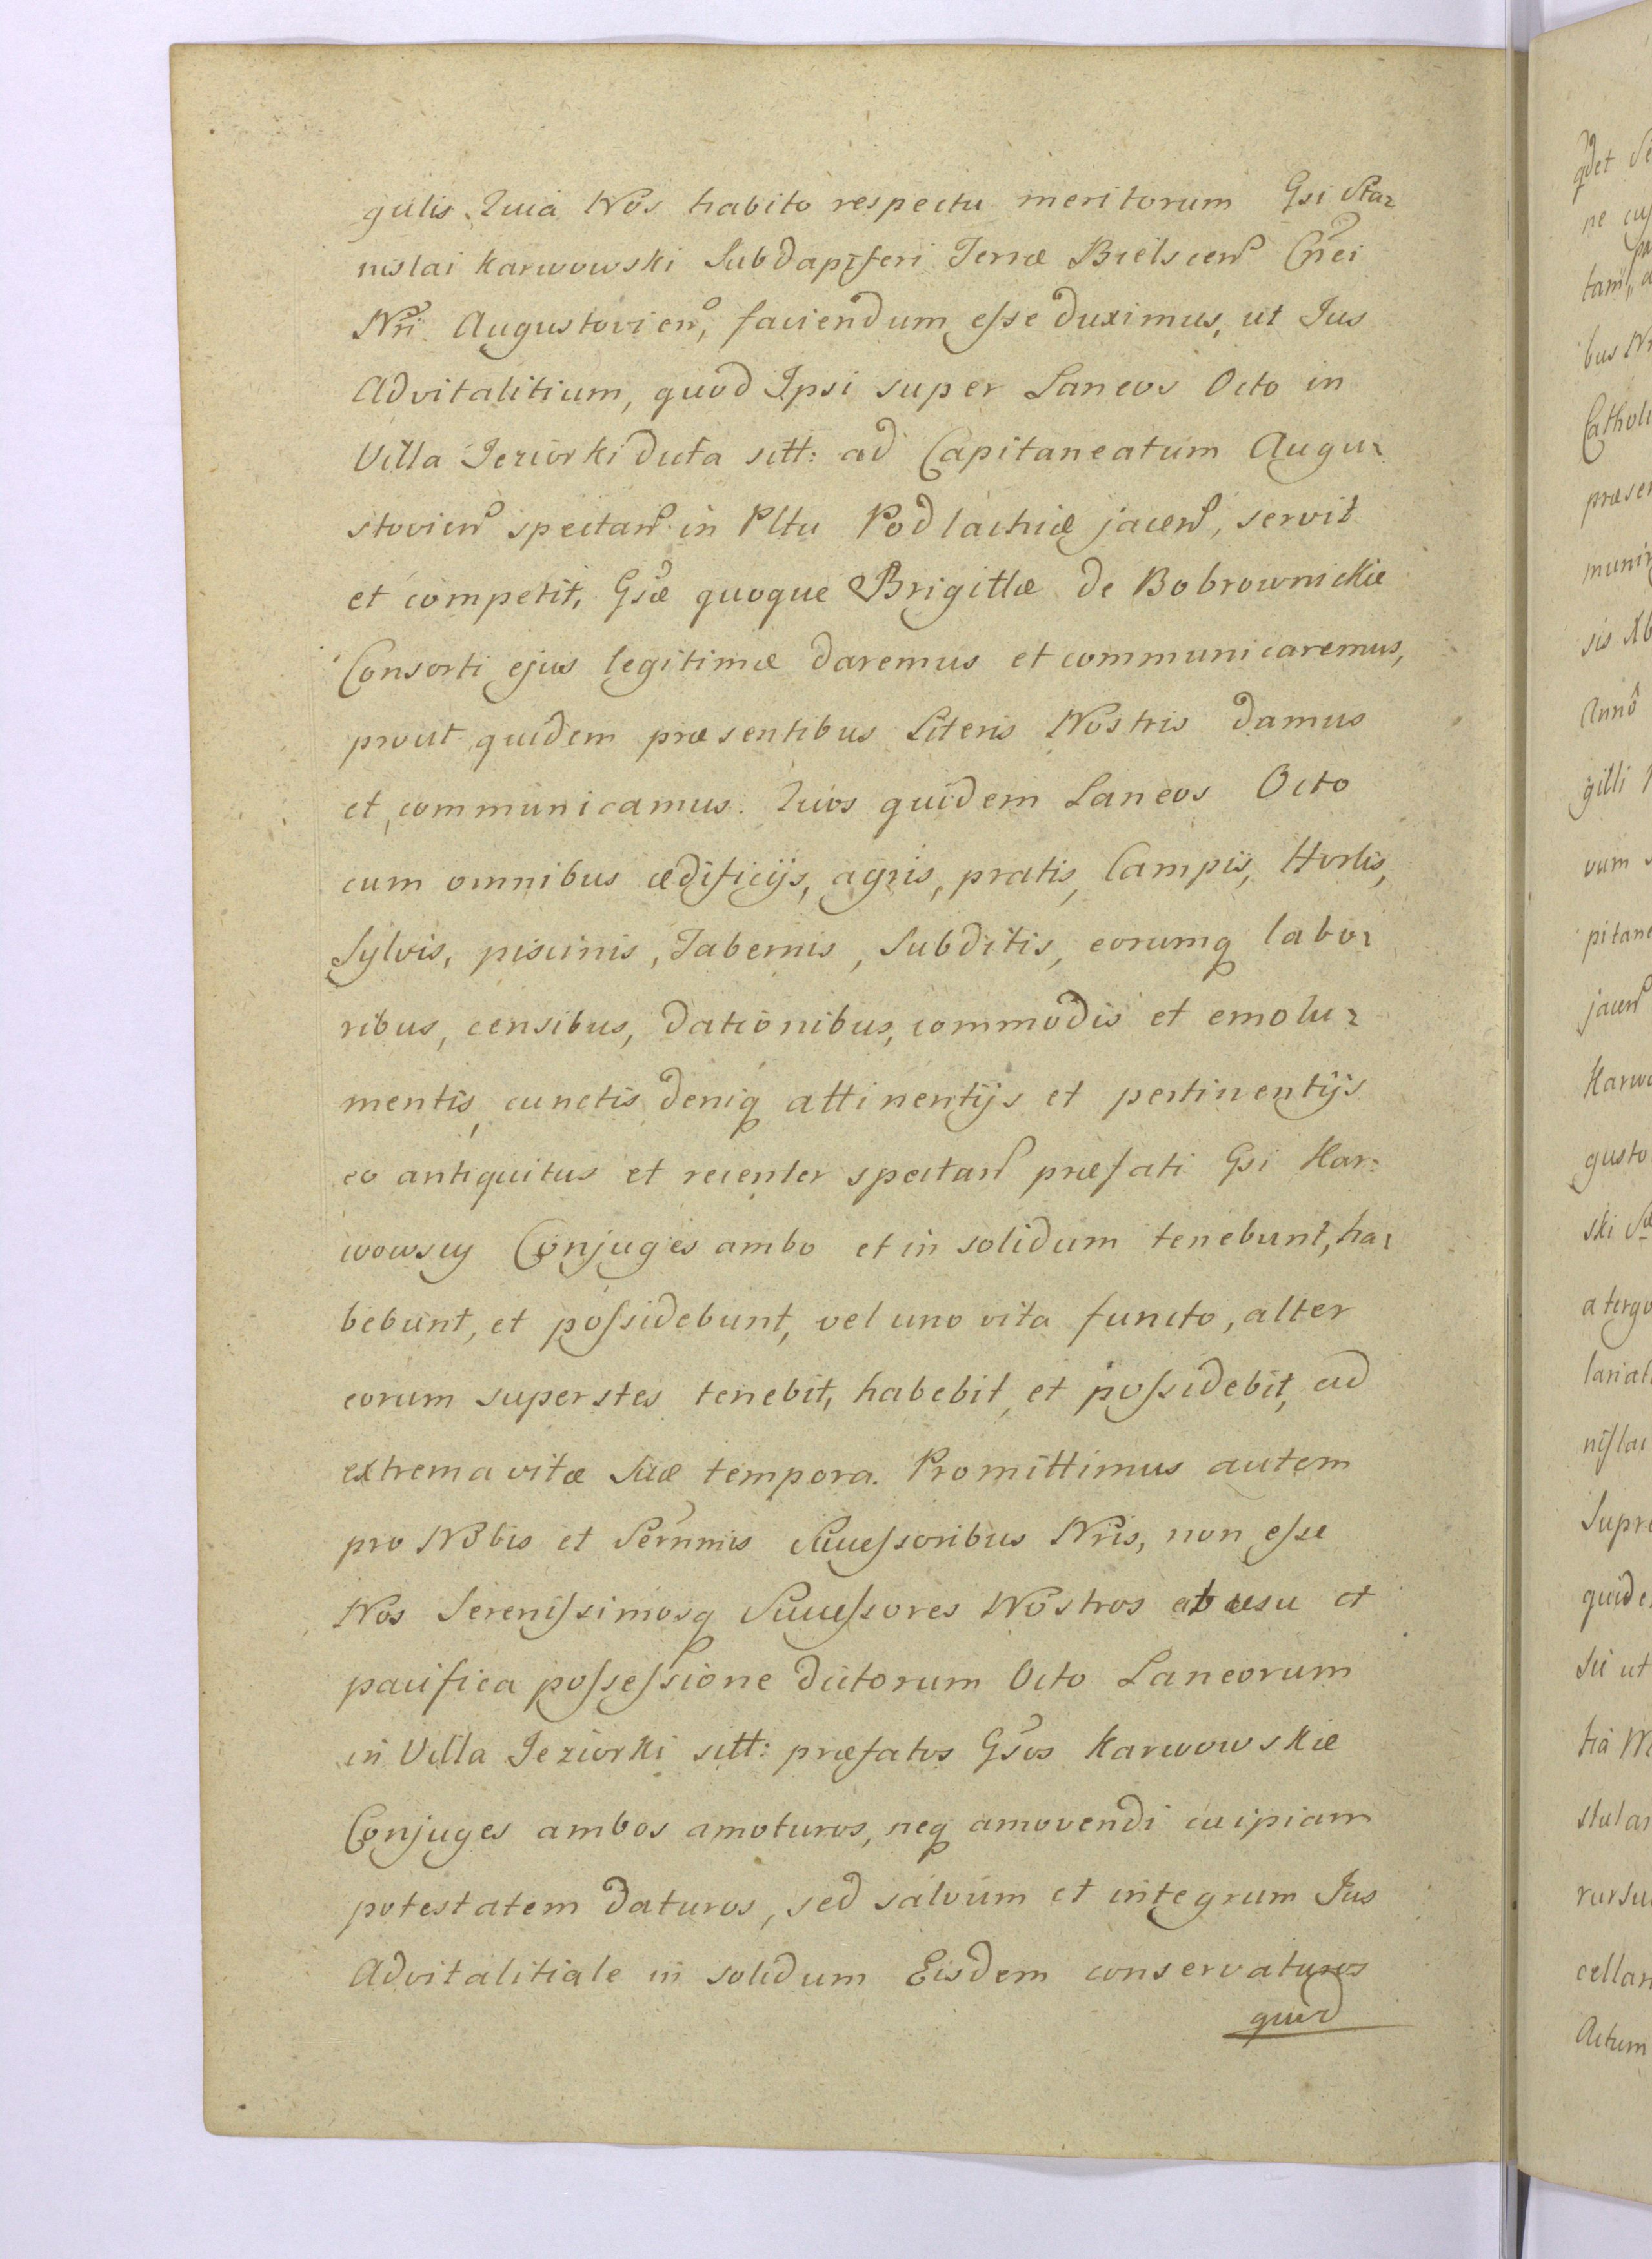 gulis. Quia Nos habito respectu meritorum Gsi Sta-
nislai Karwowski Subdapiferi Terræ Bielscen Cnei
Nri Augustovien, faciendum esse duximus, ut Jus
Advitalitium, quod Ipsi super Laneos Octo in
Villa Jeziorki dicta sitt: ad Capitaneatum Augu-
stovien spectan in Pltu Podlachiæ jacen, servit
et competit, Gsæ quoque Brigittæ de Bobrownickie
Consorti ejus legitimæ daremus et communicaremus,
prout quidem præsentibus Literis Nostris damus
et communicamus. Quos quidem Laneos Octo
cum omnibus ædificijs, agris, pratis, Campis, Hortis,
Sylvis, piscinis, Tabernis, Subditis, eorumq labo-
ribus, censibus, dationibus, commodis et emolu-
mentis, cunctis deniq attinentijs et pertinentijs
eo antiquitus et recenter spectan præfati Gsi Kar-
wowscy Conjuges ambo et in solidum tenebunt, ha-
bebunt, et possidebunt, vel uno vita functo, alter
eorum superstes tenebit, habebit, et possidebit, ad
extrema vitæ suæ tempora. Promittimus autem
pro Nobis et Sernmis Successoribus Nris, non esse
Nos Serenissimosq Successores Nostros ab usu et
pacifica possessione dictorum Octo Laneorum
in Villa Jeziorki sitt: præfatos Gsos Karwowskie
Conjuges ambos amoturos, neq amovendi cuipiam
potestatem daturos, sed salvum et integrum Jus
Advitalitiale in solidum Eisdem conservaturos
quod
bus
Catholi
præsen
munir
Anno
gilli
vum
pitane
jacen
Karwo
gusto
ski
a tergo
nislai
Supre
quide
ut
stulan
rursu
cellar
Actum